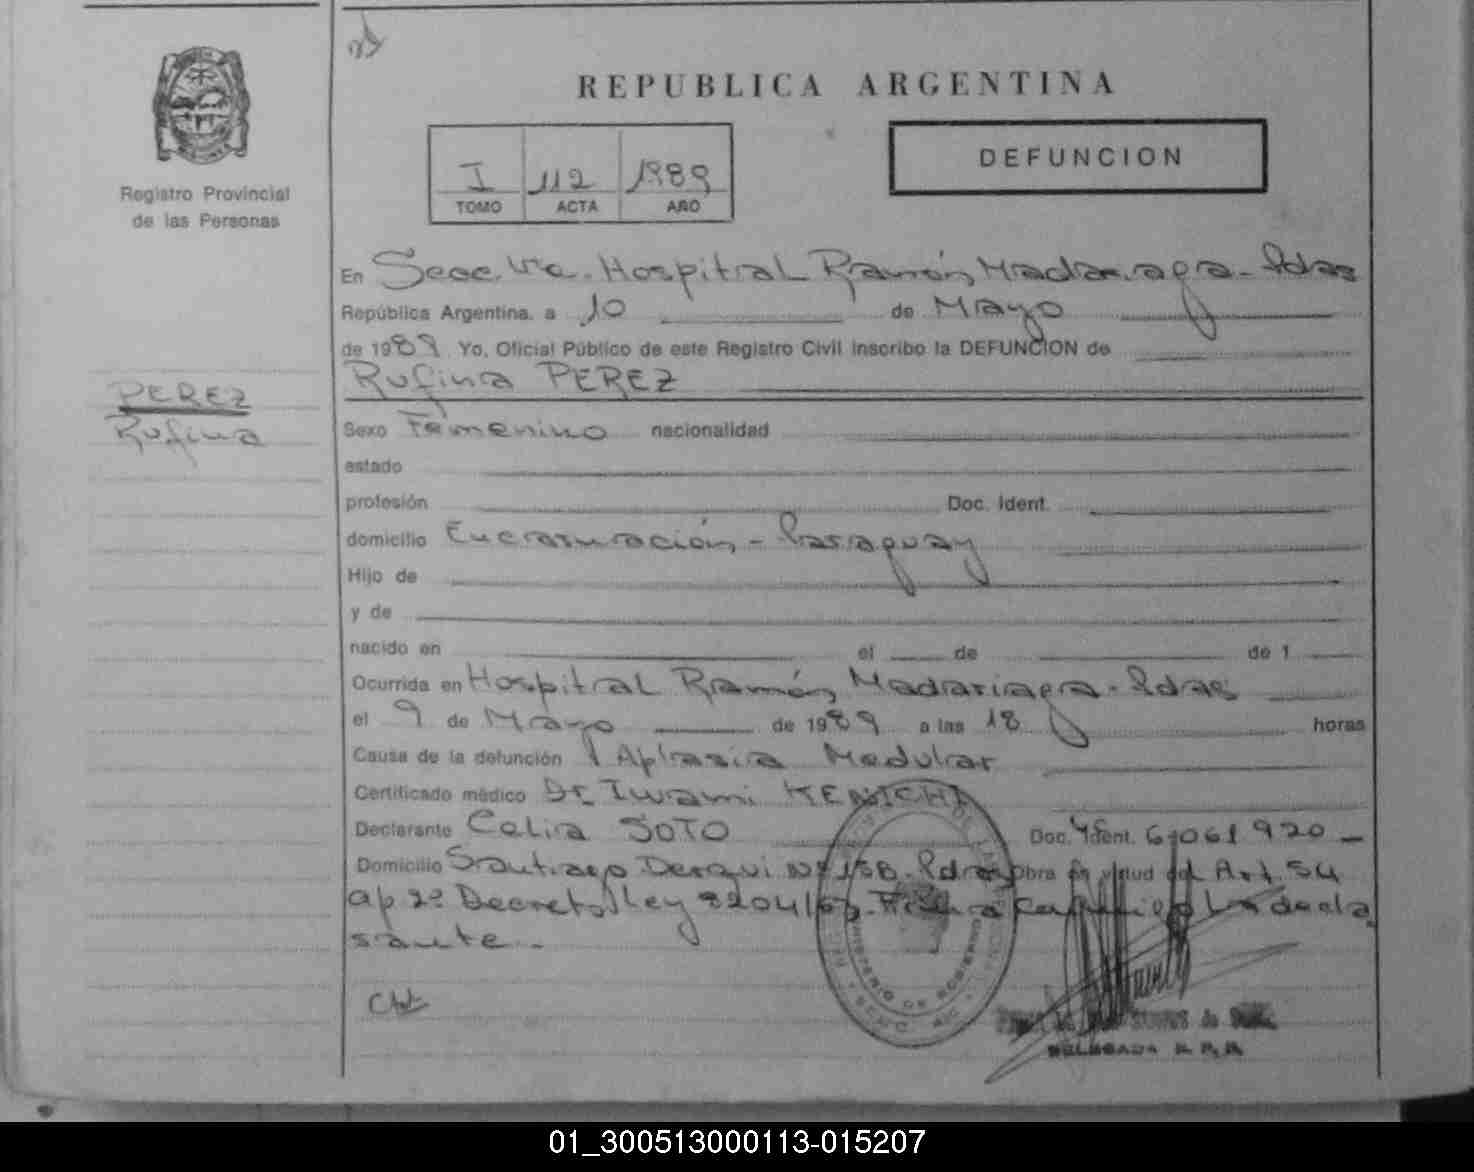 REPUBLICA ARGENTINA
DEFUNCION
Registro Provincial
de las Personas
I 112 1989
TOMO ACTA AÑO
En Secc. 1ra. Hospital Ramón Madariaga - Pdas
República Argentina, a 10 de Mayo
de 1989 Yo, Oficial Público de este Registro Civil inscribo la DEFUNCION de
Rufina PEREZ
PEREZ
Rufina
Sexo Femenino nacionalidad
estado
profesión Doc. Ident.
domicilio Encarnación - Paraguay
Hijo de
y de
nacido en el de de 1
Ocurrida en Hospital Ramón Madariaga - Pdas
el 9 de Mayo de 1989 a las 18 horas
Causa de la defunción Aplasia Medular
Certificado médico Dr Iwami KENICHI
Declarante Celia SOTO Doc. Ident. 6.061.920 -
Domicilio Santiago Derqui Nº 158 - Pdas Obra en virtud del Art. 54
ap 2º Decreto Ley 8204/63. la decla
rante. -
MINISTERIO DE GOBIERNO
DELEGADA R. P. P.
01_300513000113-015207